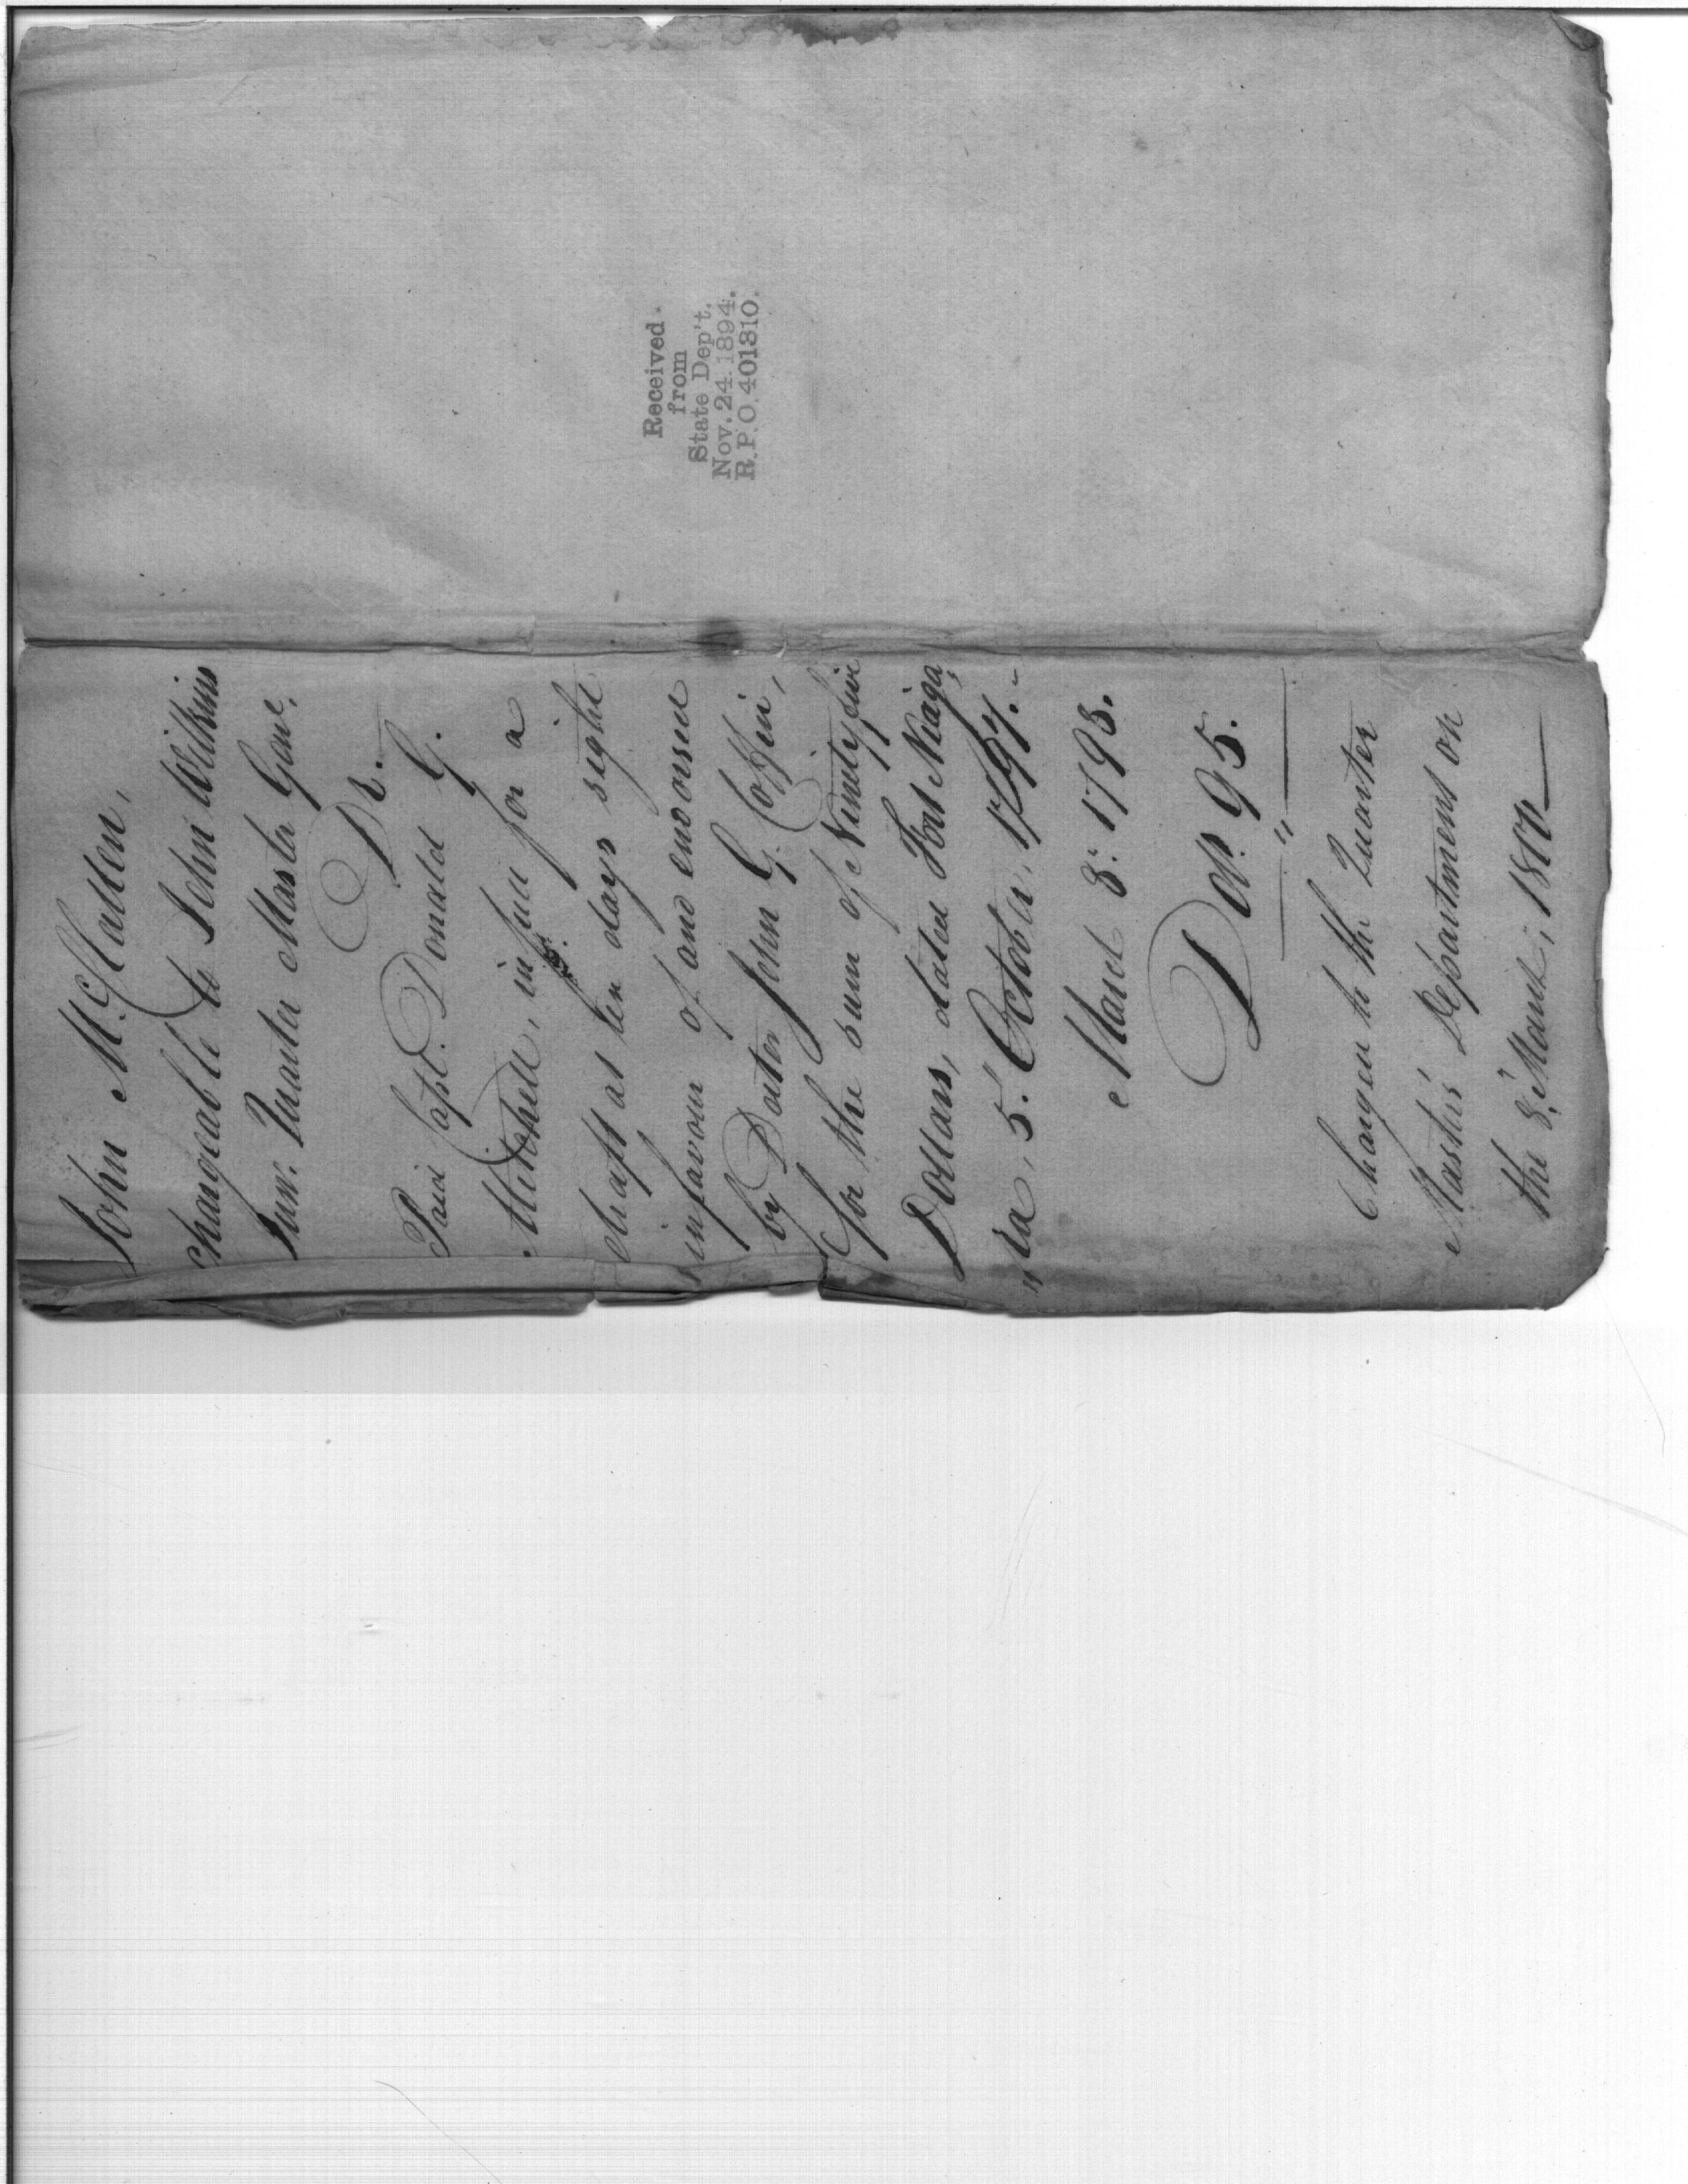 John McCallen,
Chargeable to John Wilkins
Junr. Quarter Master Genl.
Dr.
Paid Capt. Donald G.
Mitchell, in full for a
draft at ten days sight
in favour of and endorsed
by Docter John G. Coffin,
for the sum of Ninety five
Dollars, dated Fort Niaga,
"ra, 5. October, 1797.-
March 8: 1798.
Doll. 95.
"
Charged to the Quarter
Master's Department on
the 8. March, 1800
Received
from
State Dep't.
Nov. 24. 1894.
R.P.O. 401310.